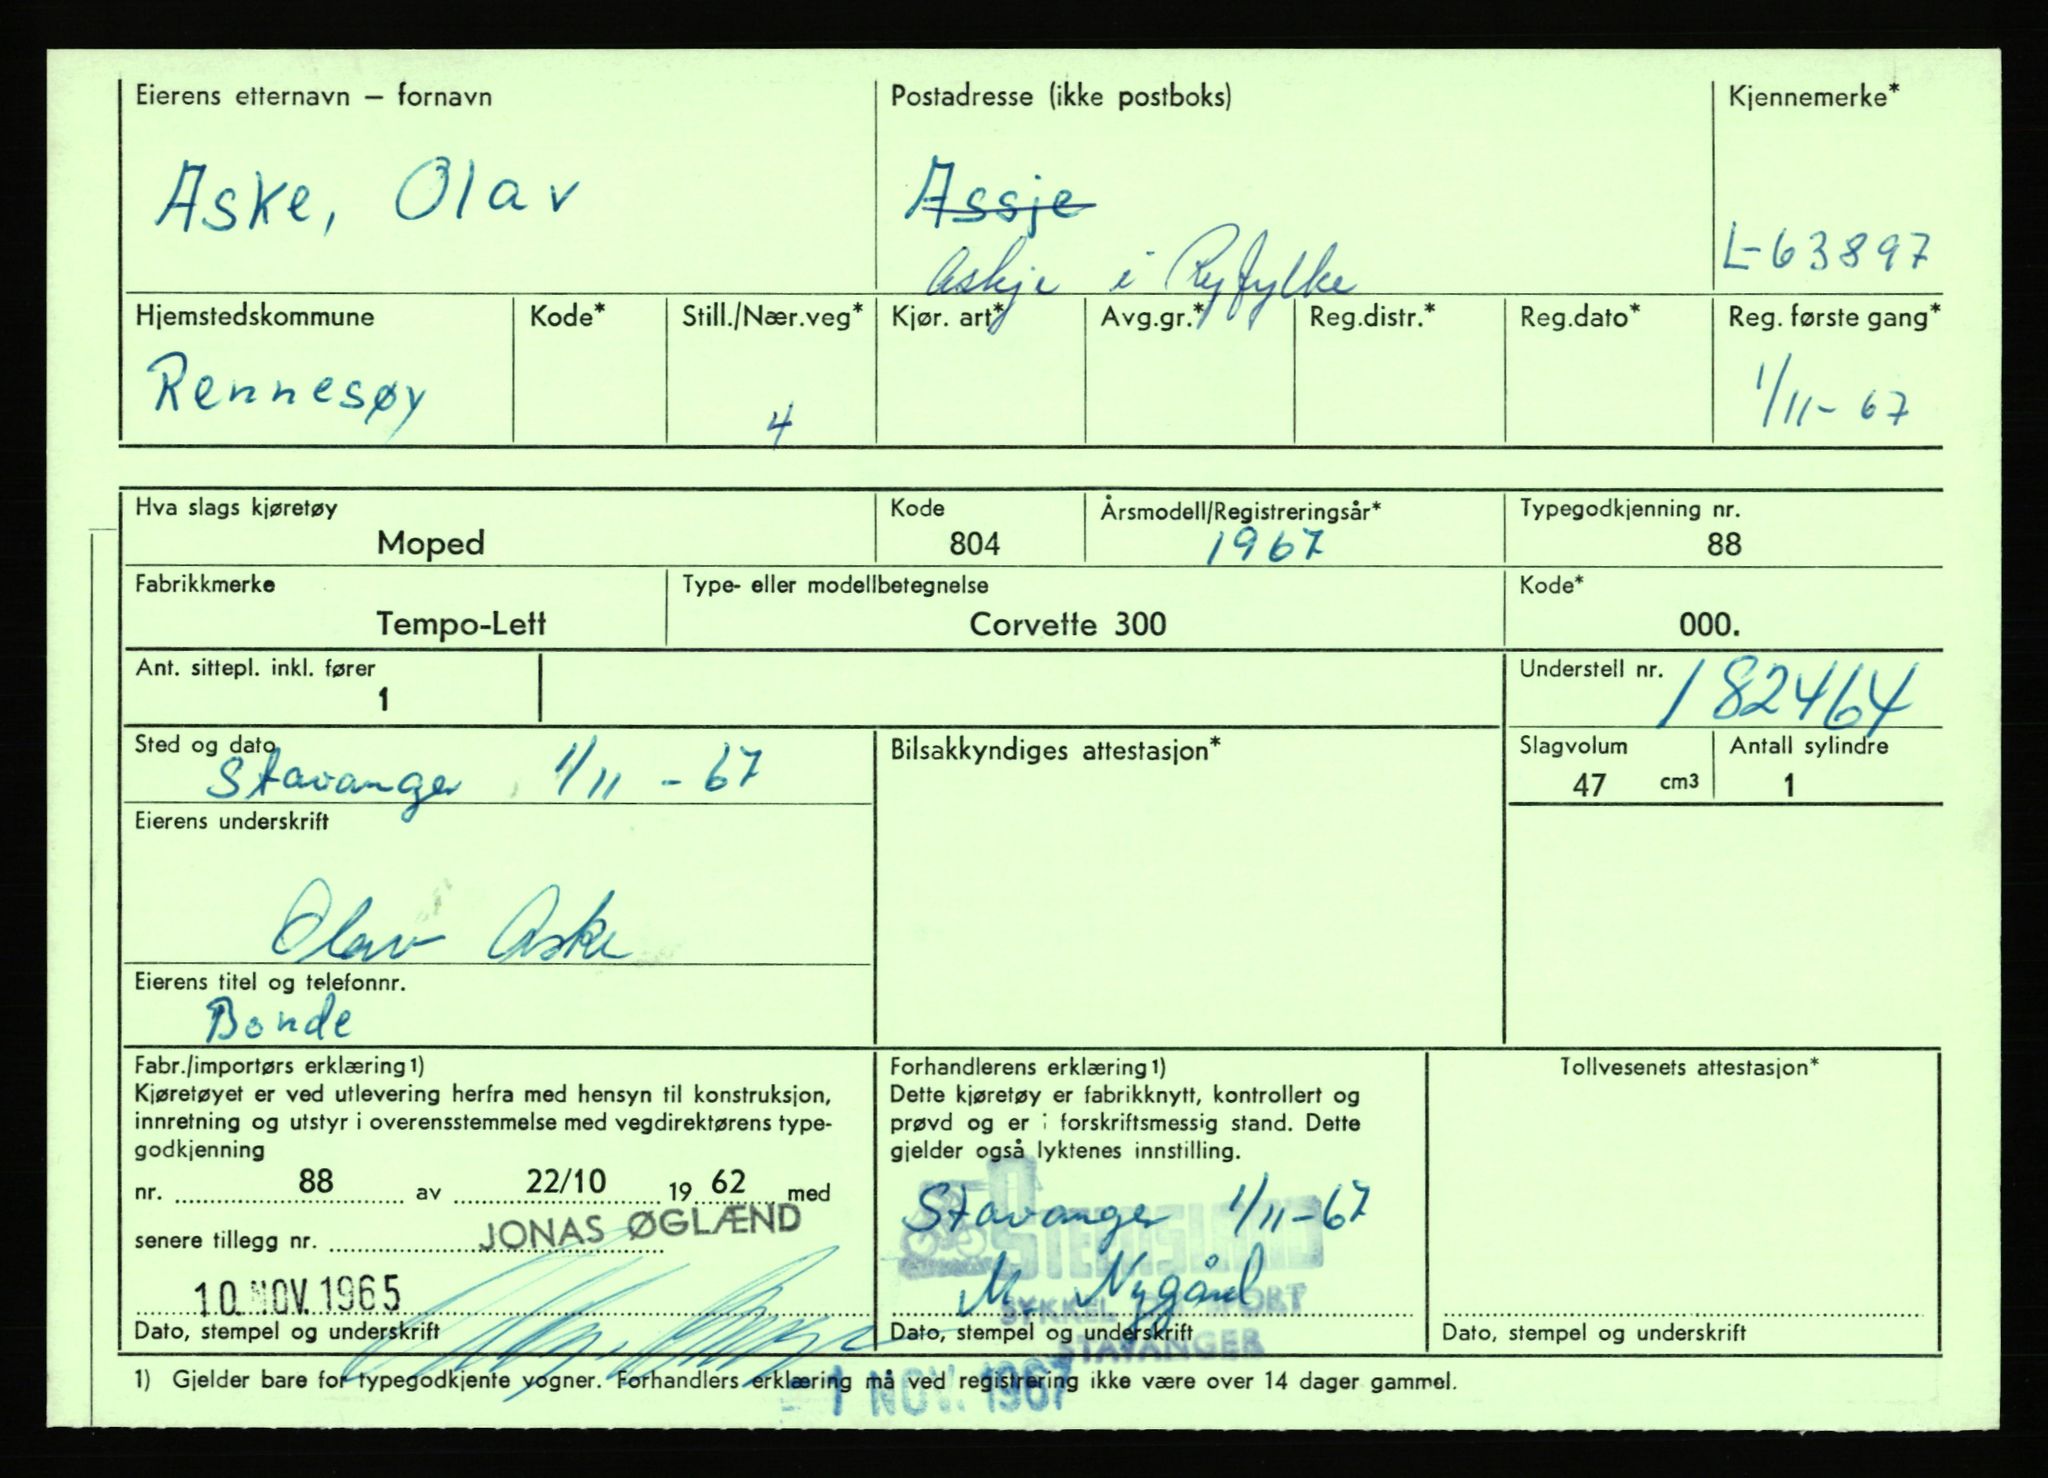 Eierens etternavn – fornavn
Aske, Olav
Postadresse (ikke postboks)
Assje
Askje i Ryfylke
Kjennemerke*
L-63897
Hjemstedskommune
Rennesøy
Kode*
Still./Nær.veg*
4
Kjør. art*
Avg.gr.*
Reg.distr.*
Reg.dato*
Reg. første gang*
1/11-67
Hva slags kjøretøy
Moped
Kode
804
Årsmodell/Registreringsår*
1967
Typegodkjenning nr.
88
Fabrikkmerke
Tempo-Lett
Type- eller modellbetegnelse
Corvette 300
Kode*
000.
Ant. sittepl. inkl. fører
1
Understell nr.
182464
Sted og dato
Stavanger 1/11-67
Bilsakkyndiges attestasjon*
Slagvolum
47 cm3
Antall sylindre
1
Eierens underskrift
Olav Aske
Eierens titel og telefonnr.
Bonde
Fabr./importørs erklæring 1)
Kjøretøyet er ved utlevering herfra med hensyn til konstruksjon,
innretning og utstyr i overensstemmelse med vegdirektørens type-
godkjenning
nr. 88 av 22/10 19 62 med
senere tillegg nr.
JONAS ØGLÆND
10. NOV. 1965
Dato, stempel og underskrift
Forhandlerens erklæring 1)
Dette kjøretøy er fabrikknytt, kontrollert og
prøvd og er i forskriftsmessig stand. Dette
gjelder også lyktenes innstilling.
Stavanger 1/11-67
M. Nygård
SYKKEL OG SPORT
STAVANGER
Dato, stempel og underskrift
Tollvesenets attestasjon*
Dato, stempel og underskrift
1) Gjelder bare for typegodkjente vogner. Forhandlers erklæring må ved registrering ikke være over 14 dager gammel.
- 1 NOV. 1967